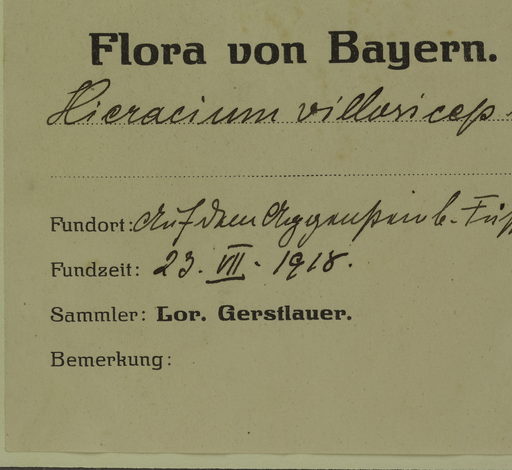 Flora von Bayern.
Hieracium villosiceps
Fundort: Auf dem Aggenstein b. Füss
Fundzeit: 23. VII. 1918.
Sammler: Lor. Gerstlauer.
Bemerkung: